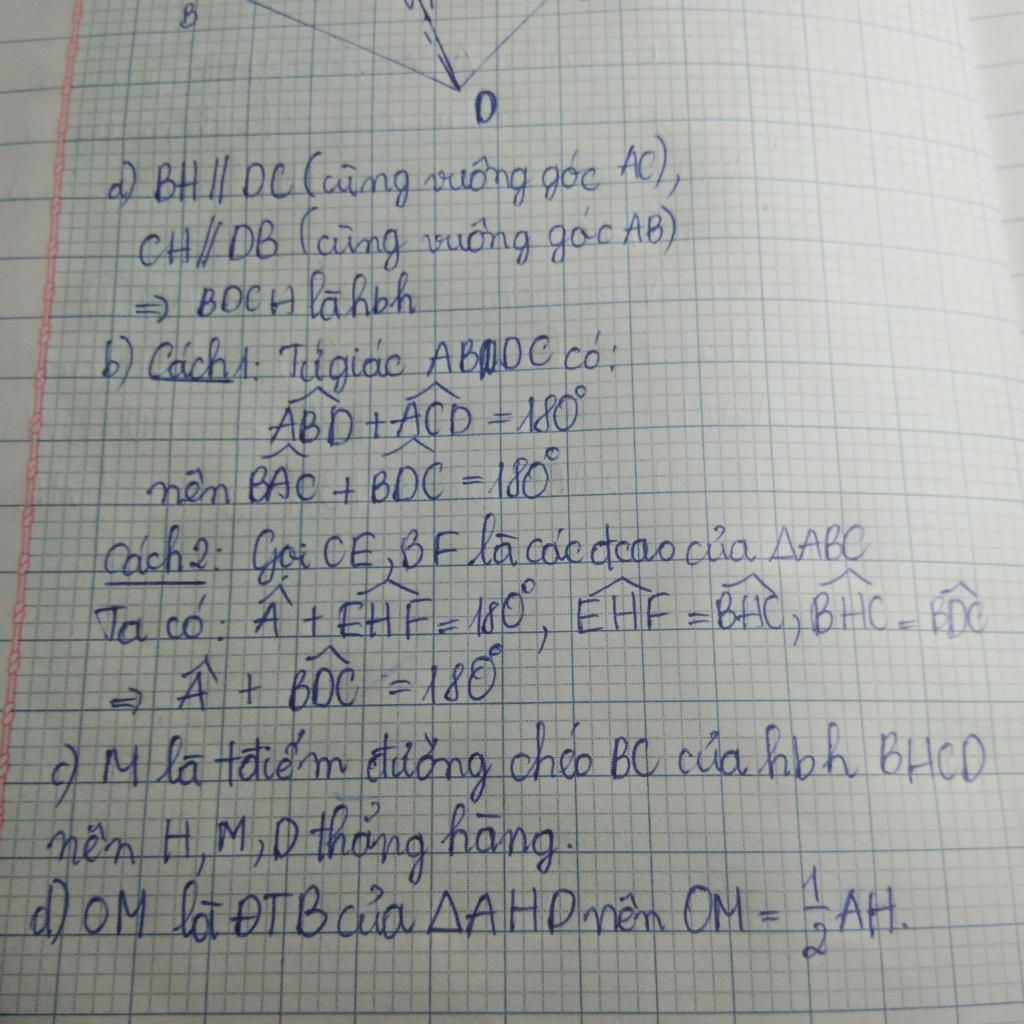 B
D
a) BH // DC (cùng vuông góc AC),
CH // DB (cùng vuông góc AB)
⇒ BDCH là hbh
b) Cách 1: Tứ giác ABDC có:
\widehat{ABD} + \widehat{ACD} = 180°
nên \widehat{BAC} + \widehat{BDC} = 180°
Cách 2: Gọi CE, BF là các đcao của ΔABC
Ta có: \widehat{A} + \widehat{EHF} = 180°, \widehat{EHF} = \widehat{BHC}, \widehat{BHC} = \widehat{BDC}
⇒ \widehat{A} + \widehat{BDC} = 180°
c) M là tđiểm đường chéo BC của hbh BHCD
nên H, M, D thẳng hàng.
d) OM là ĐTB của ΔAHD nên OM = 1/2 AH.